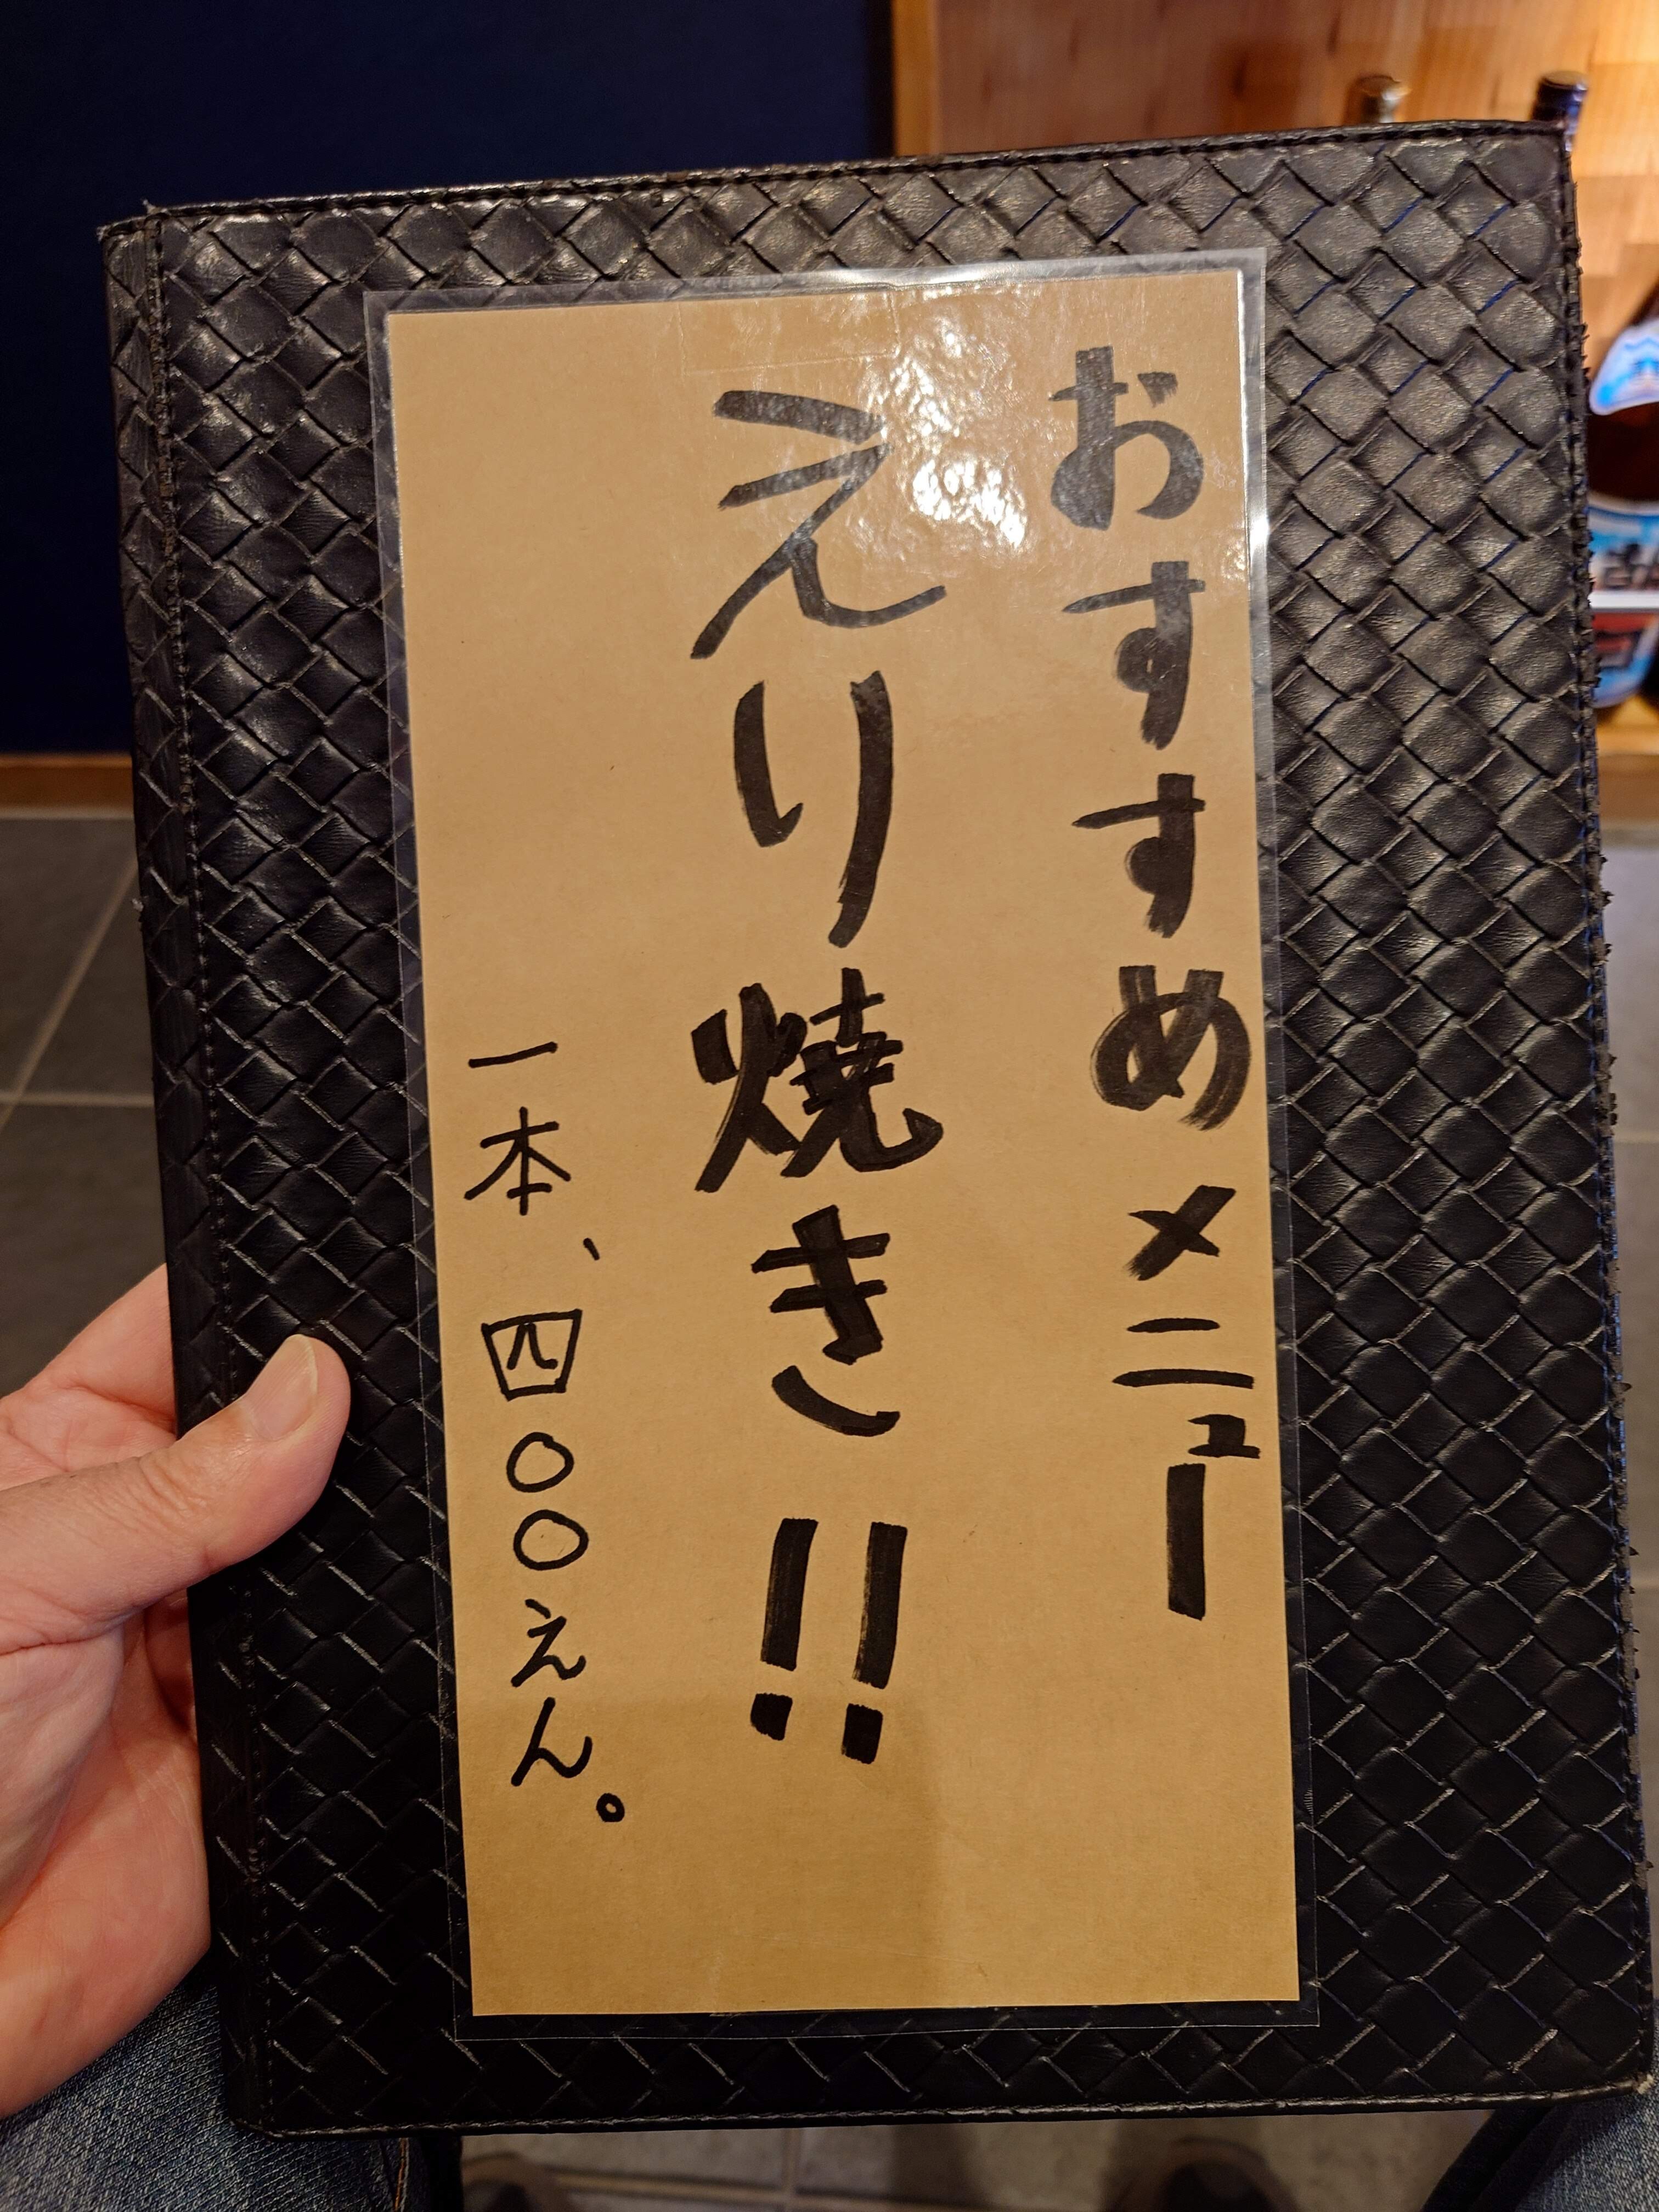 おすすめメニュー
えり焼き!!
一本、四〇〇えん。